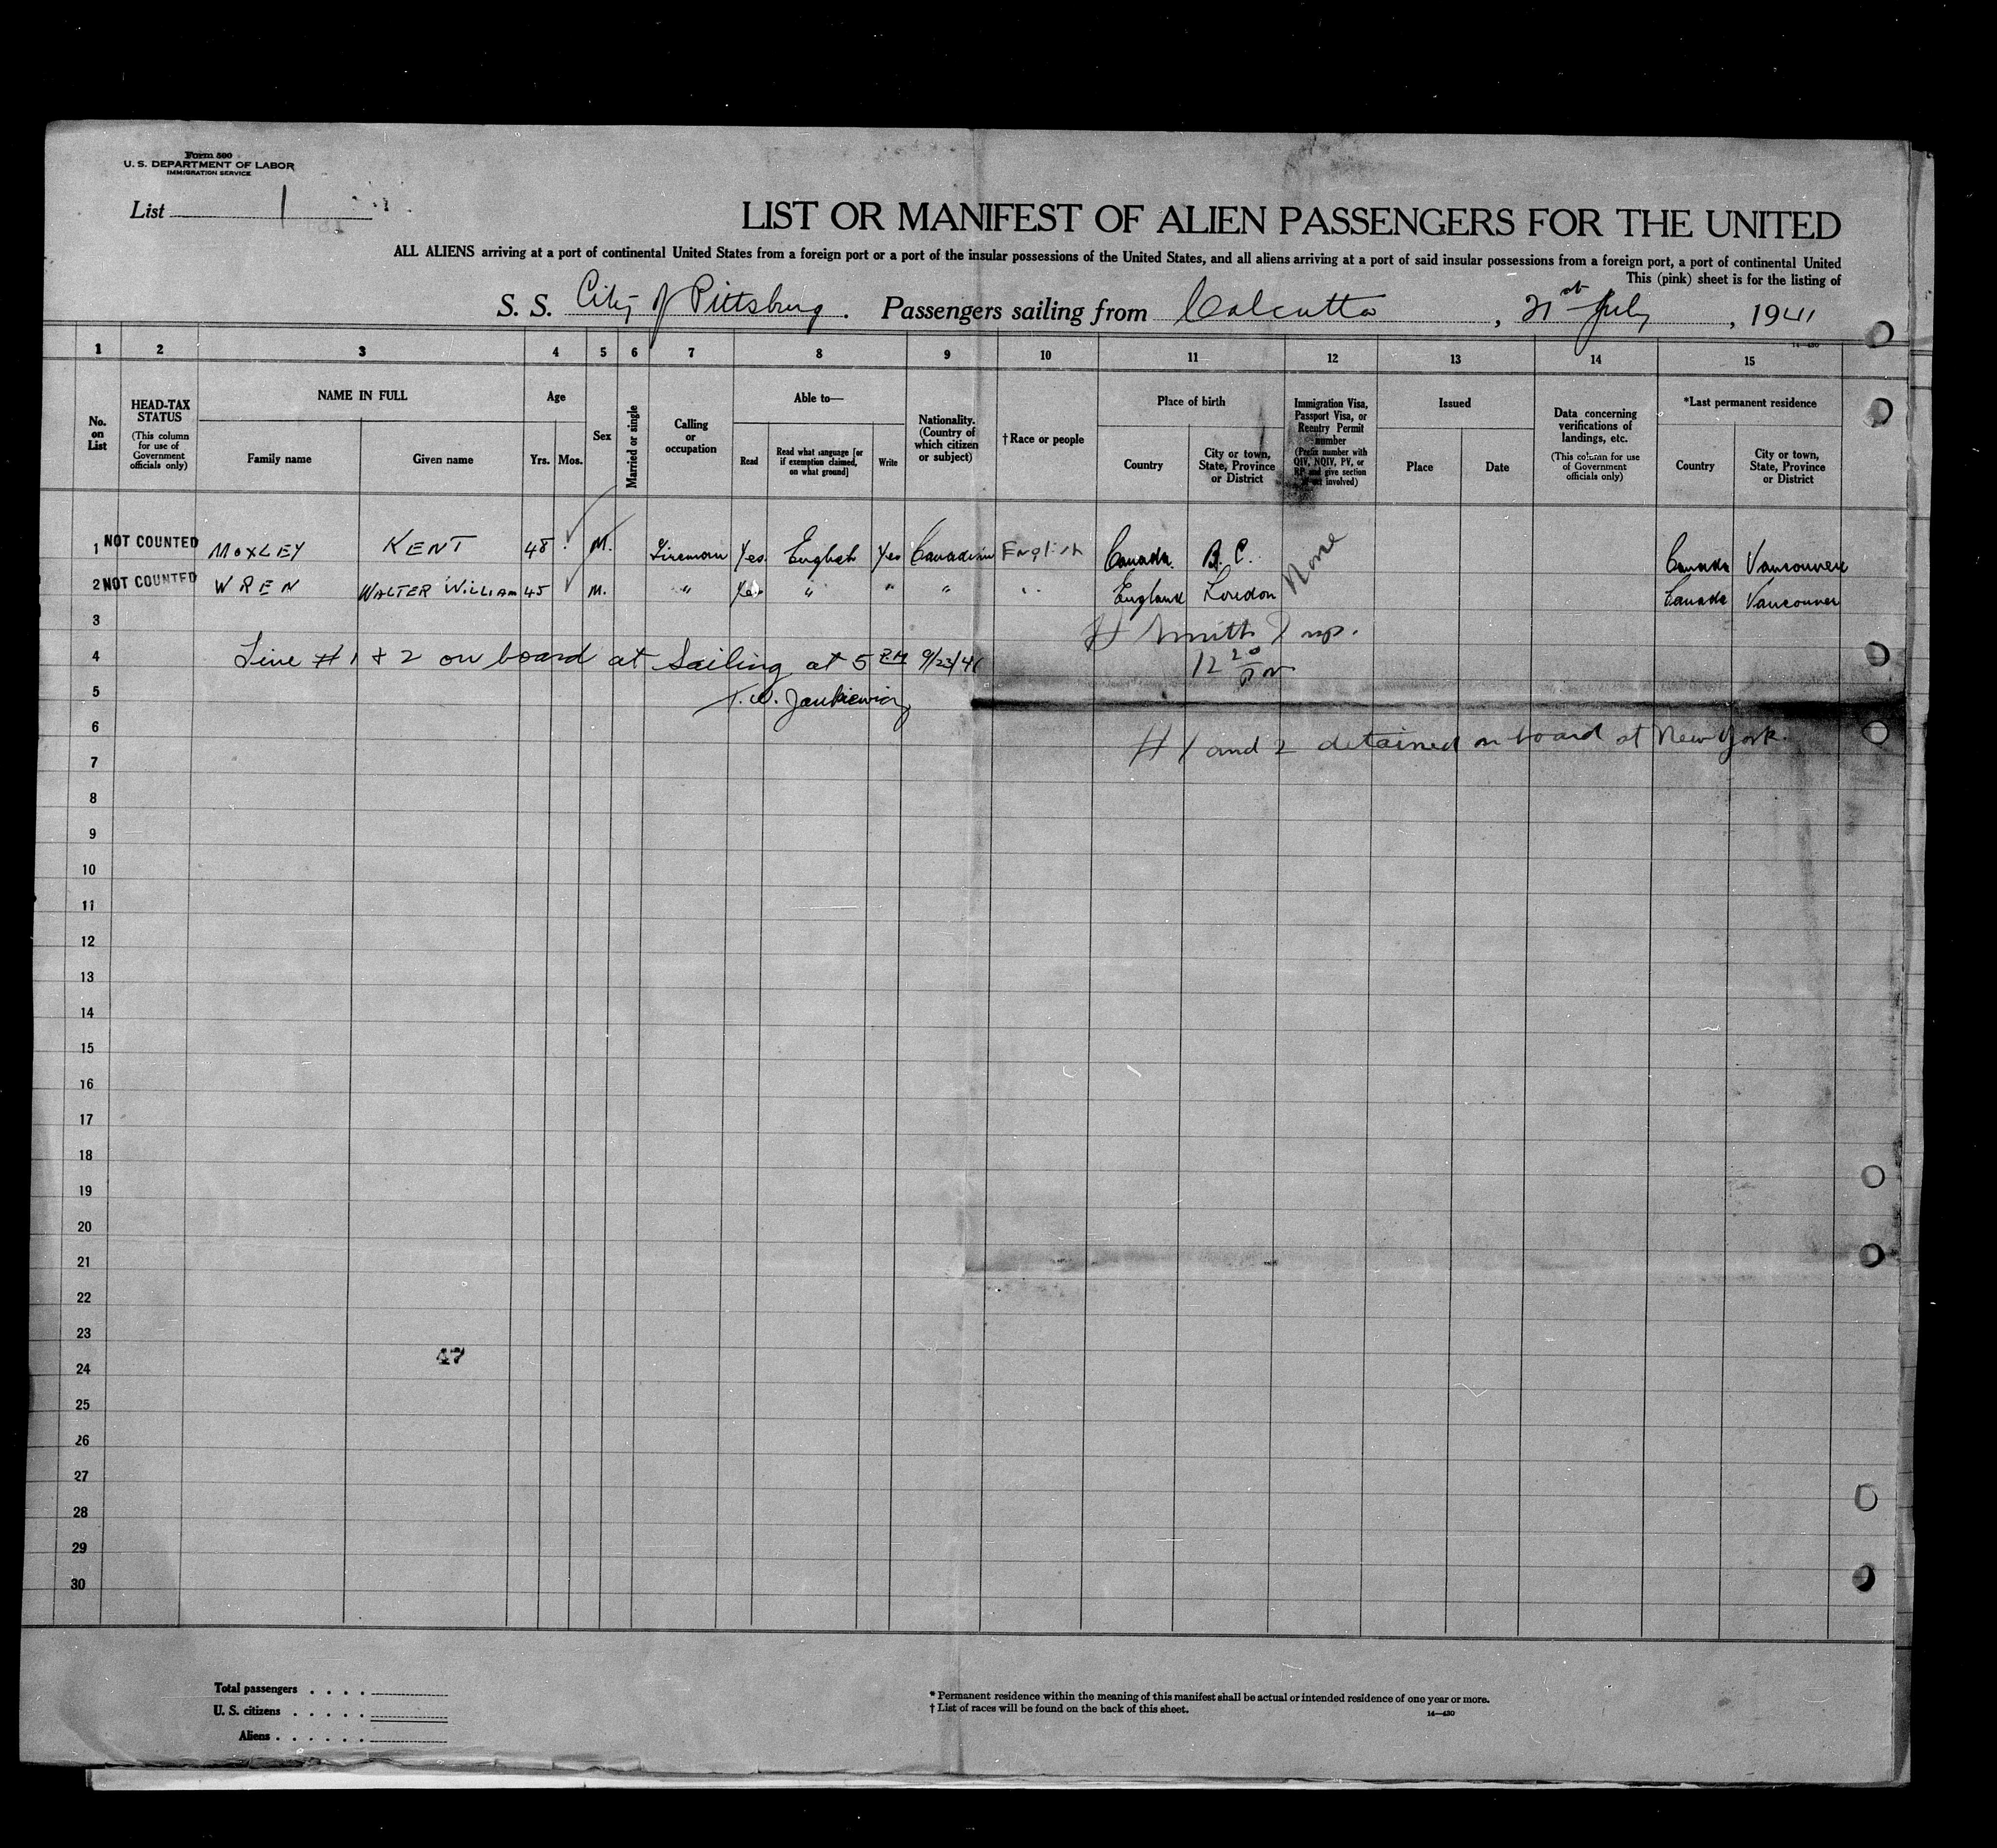 Form 500
U. S. DEPARTMENT OF LABOR
IMMIGRATION SERVICE
List 1
LIST OR MANIFEST OF ALIEN PASSENGERS FOR THE UNITED
ALL ALIENS arriving at a port of continental United States from a foreign port or a port of the insular possessions of the United States, and all aliens arriving at a port of said insular possessions from a foreign port, a port of continental United
This (pink) sheet is for the listing of
S. S. City of Pittsburg . Passengers sailing from Calcutta , 21st July , 1941
1 2 3 4 5 6 7 8 9 10 11 12 13 14 15
No. on List
HEAD-TAX STATUS (This column for use of Government officials only)
NAME IN FULL
Family name
Given name
Age
Yrs.
Mos.
Sex
Married or single
Calling or occupation
Able to—
Read
Read what language [or if exemption claimed, on what ground]
Write
Nationality. (Country of which citizen or subject)
† Race or people
Place of birth
Country
City or town, State, Province or District
Immigration Visa, Passport Visa, or Reentry Permit number (Prefix number with QIV, NQIV, PV, or RP and give section of act involved)
Issued
Place
Date
Data concerning verifications of landings, etc. (This column for use of Government officials only)
*Last permanent residence
Country
City or town, State, Province or District
1 NOT COUNTED MOXLEY KENT 48 M. Fireman Yes. English Yes Canadian English Canada. B. C. None Canada Vancouver
2 NOT COUNTED WREN WALTER WILLIAM 45 M. " Yes " " " " England London Canada Vancouver
3
H Smith Insp.
4 Line # 1 & 2 on board at Sailing at 5 PM 9/23/41
12 20 PM
5 T. W. Jankiewicz
6
# 1 and 2 detained on board at New York.
7
8
9
10
11
12
13
14
15
16
17
18
19
20
21
22
23
47
24
25
26
27
28
29
30
Total passengers
U. S. citizens
Aliens
* Permanent residence within the meaning of this manifest shall be actual or intended residence of one year or more.
† List of races will be found on the back of this sheet.
14—430